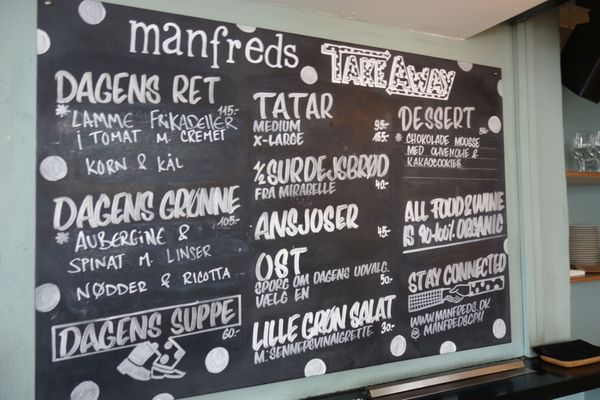 manfreds
TAKE AWAY
DAGENS RET
* LAMME FRIKADELLER 115.-
I TOMAT M. CREMET
KORN & KÅL
DAGENS GRØNNE
105.-
* AUBERGINE &
SPINAT M. LINSER
NØDDER & RICOTTA
DAGENS SUPPE
60.-
TATAR
MEDIUM 95.-
X-LARGE 165.-
½ SURDEJSBRØD
FRA MIRABELLE 40.-
ANSJOSER
45.-
OST
SPØRG OM DAGENS UDVALG.
VÆLG EN 50.-
LILLE GRØN SALAT
M: SENNEPSVINAIGRETTE 30.-
DESSERT
50.-
* CHOKOLADE MOUSSE
MED OLIVENOLIE &
KAKAOCOOKIES
ALL FOOD & WINE
IS 90-100% ORGANIC
STAY CONNECTED
WWW.MANFREDS.DK
@MANFREDSCPH